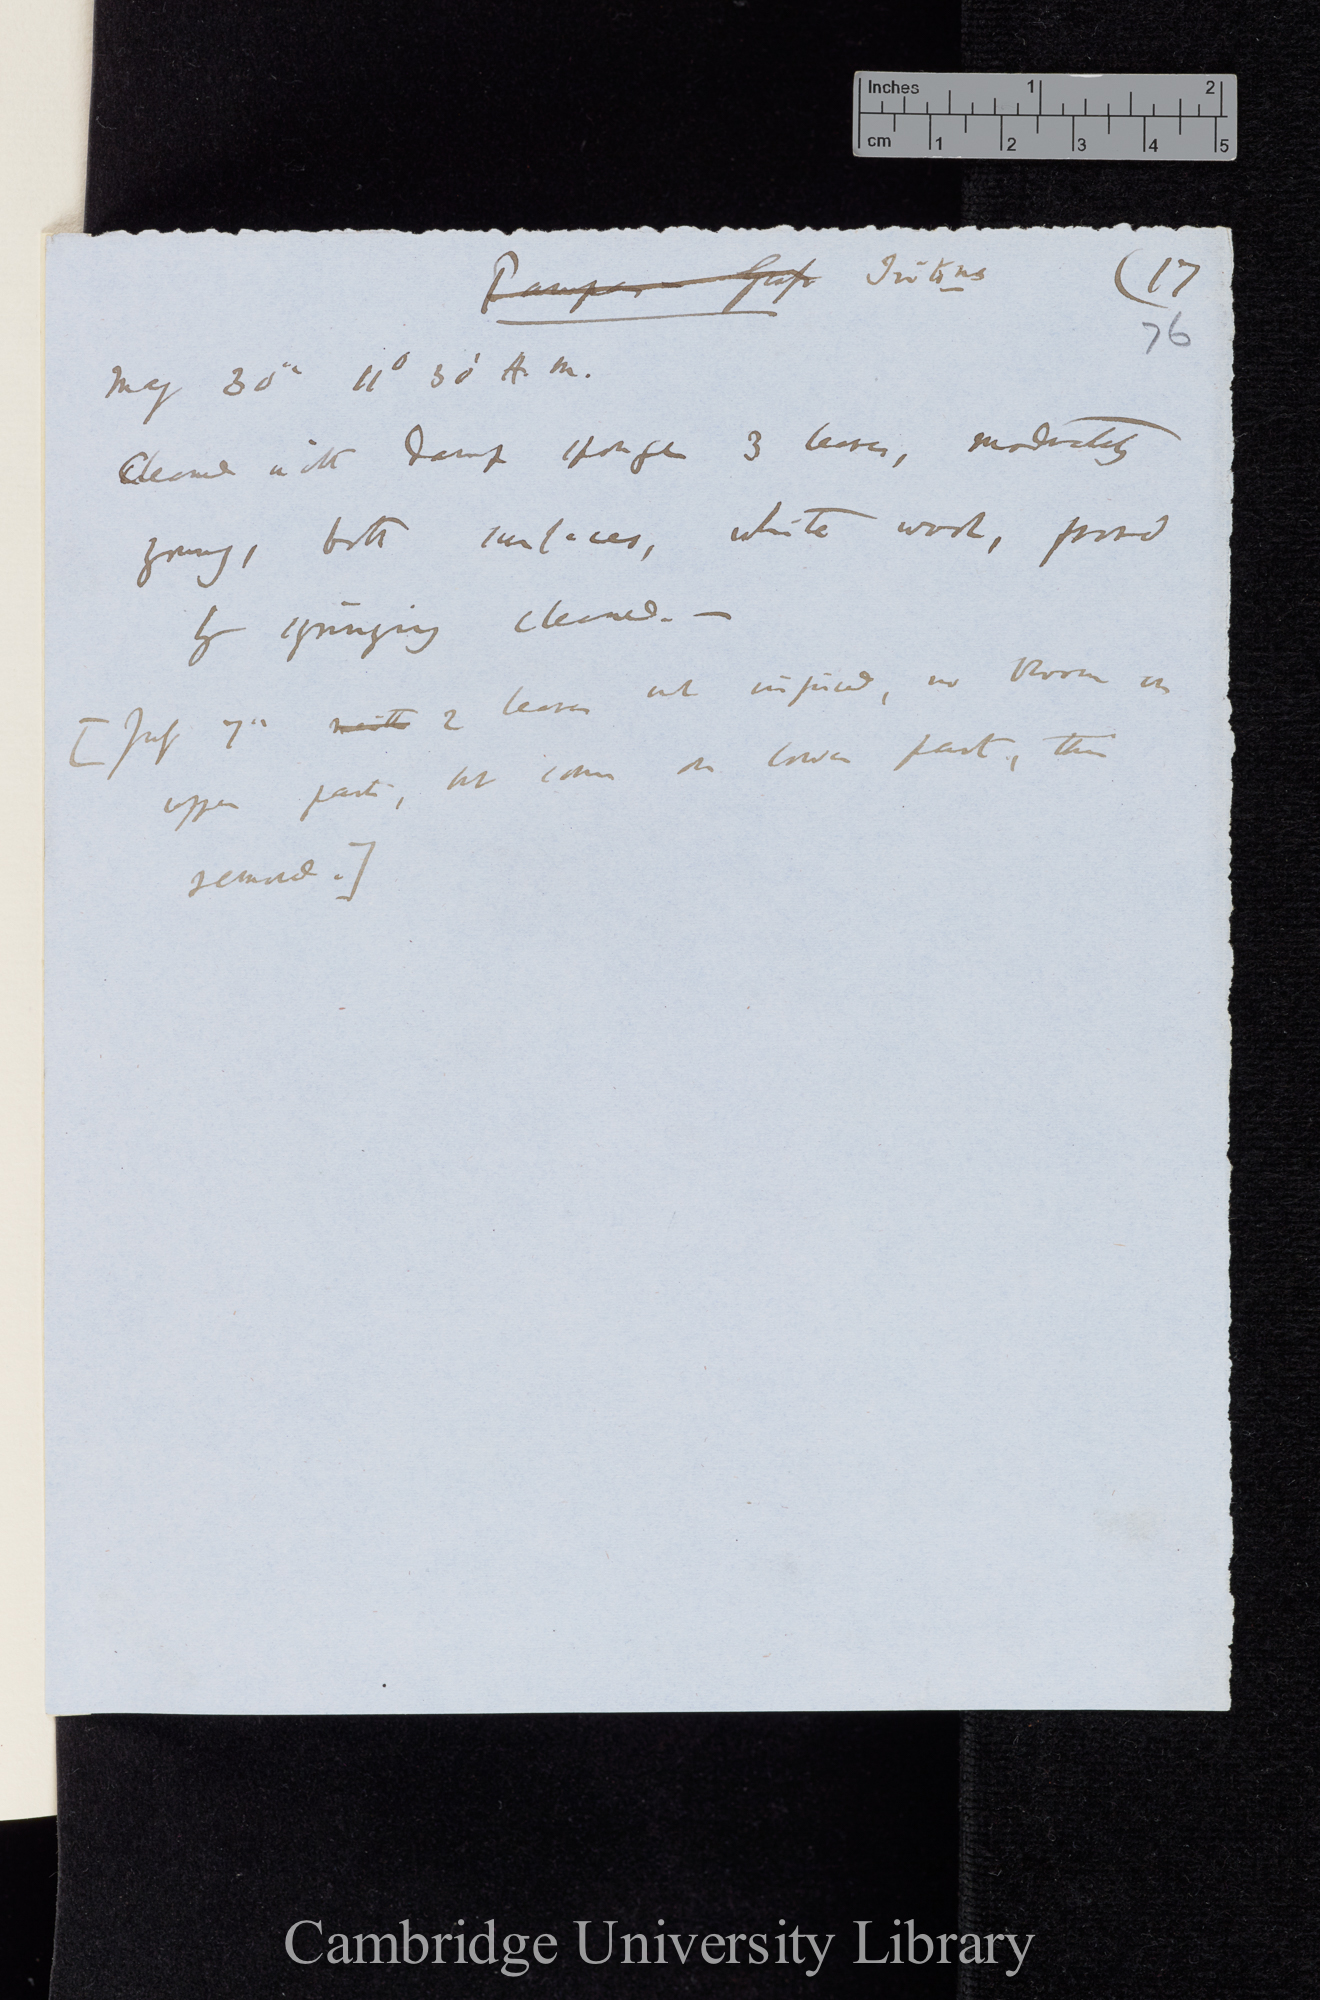 Inches 1 2
cm 1 2 3 4 5
Pampas Grass (17
76
May 30th 11° 30' A. m.
Cleaned with damp sponge 3 leaves, moderately
young, both surfaces, white wool, proved
by syringing cleaned. —
[July 7th 2 leaves not injured, no bloom on
upper part, but some on lower part, this
removed.]
Cambridge University Library